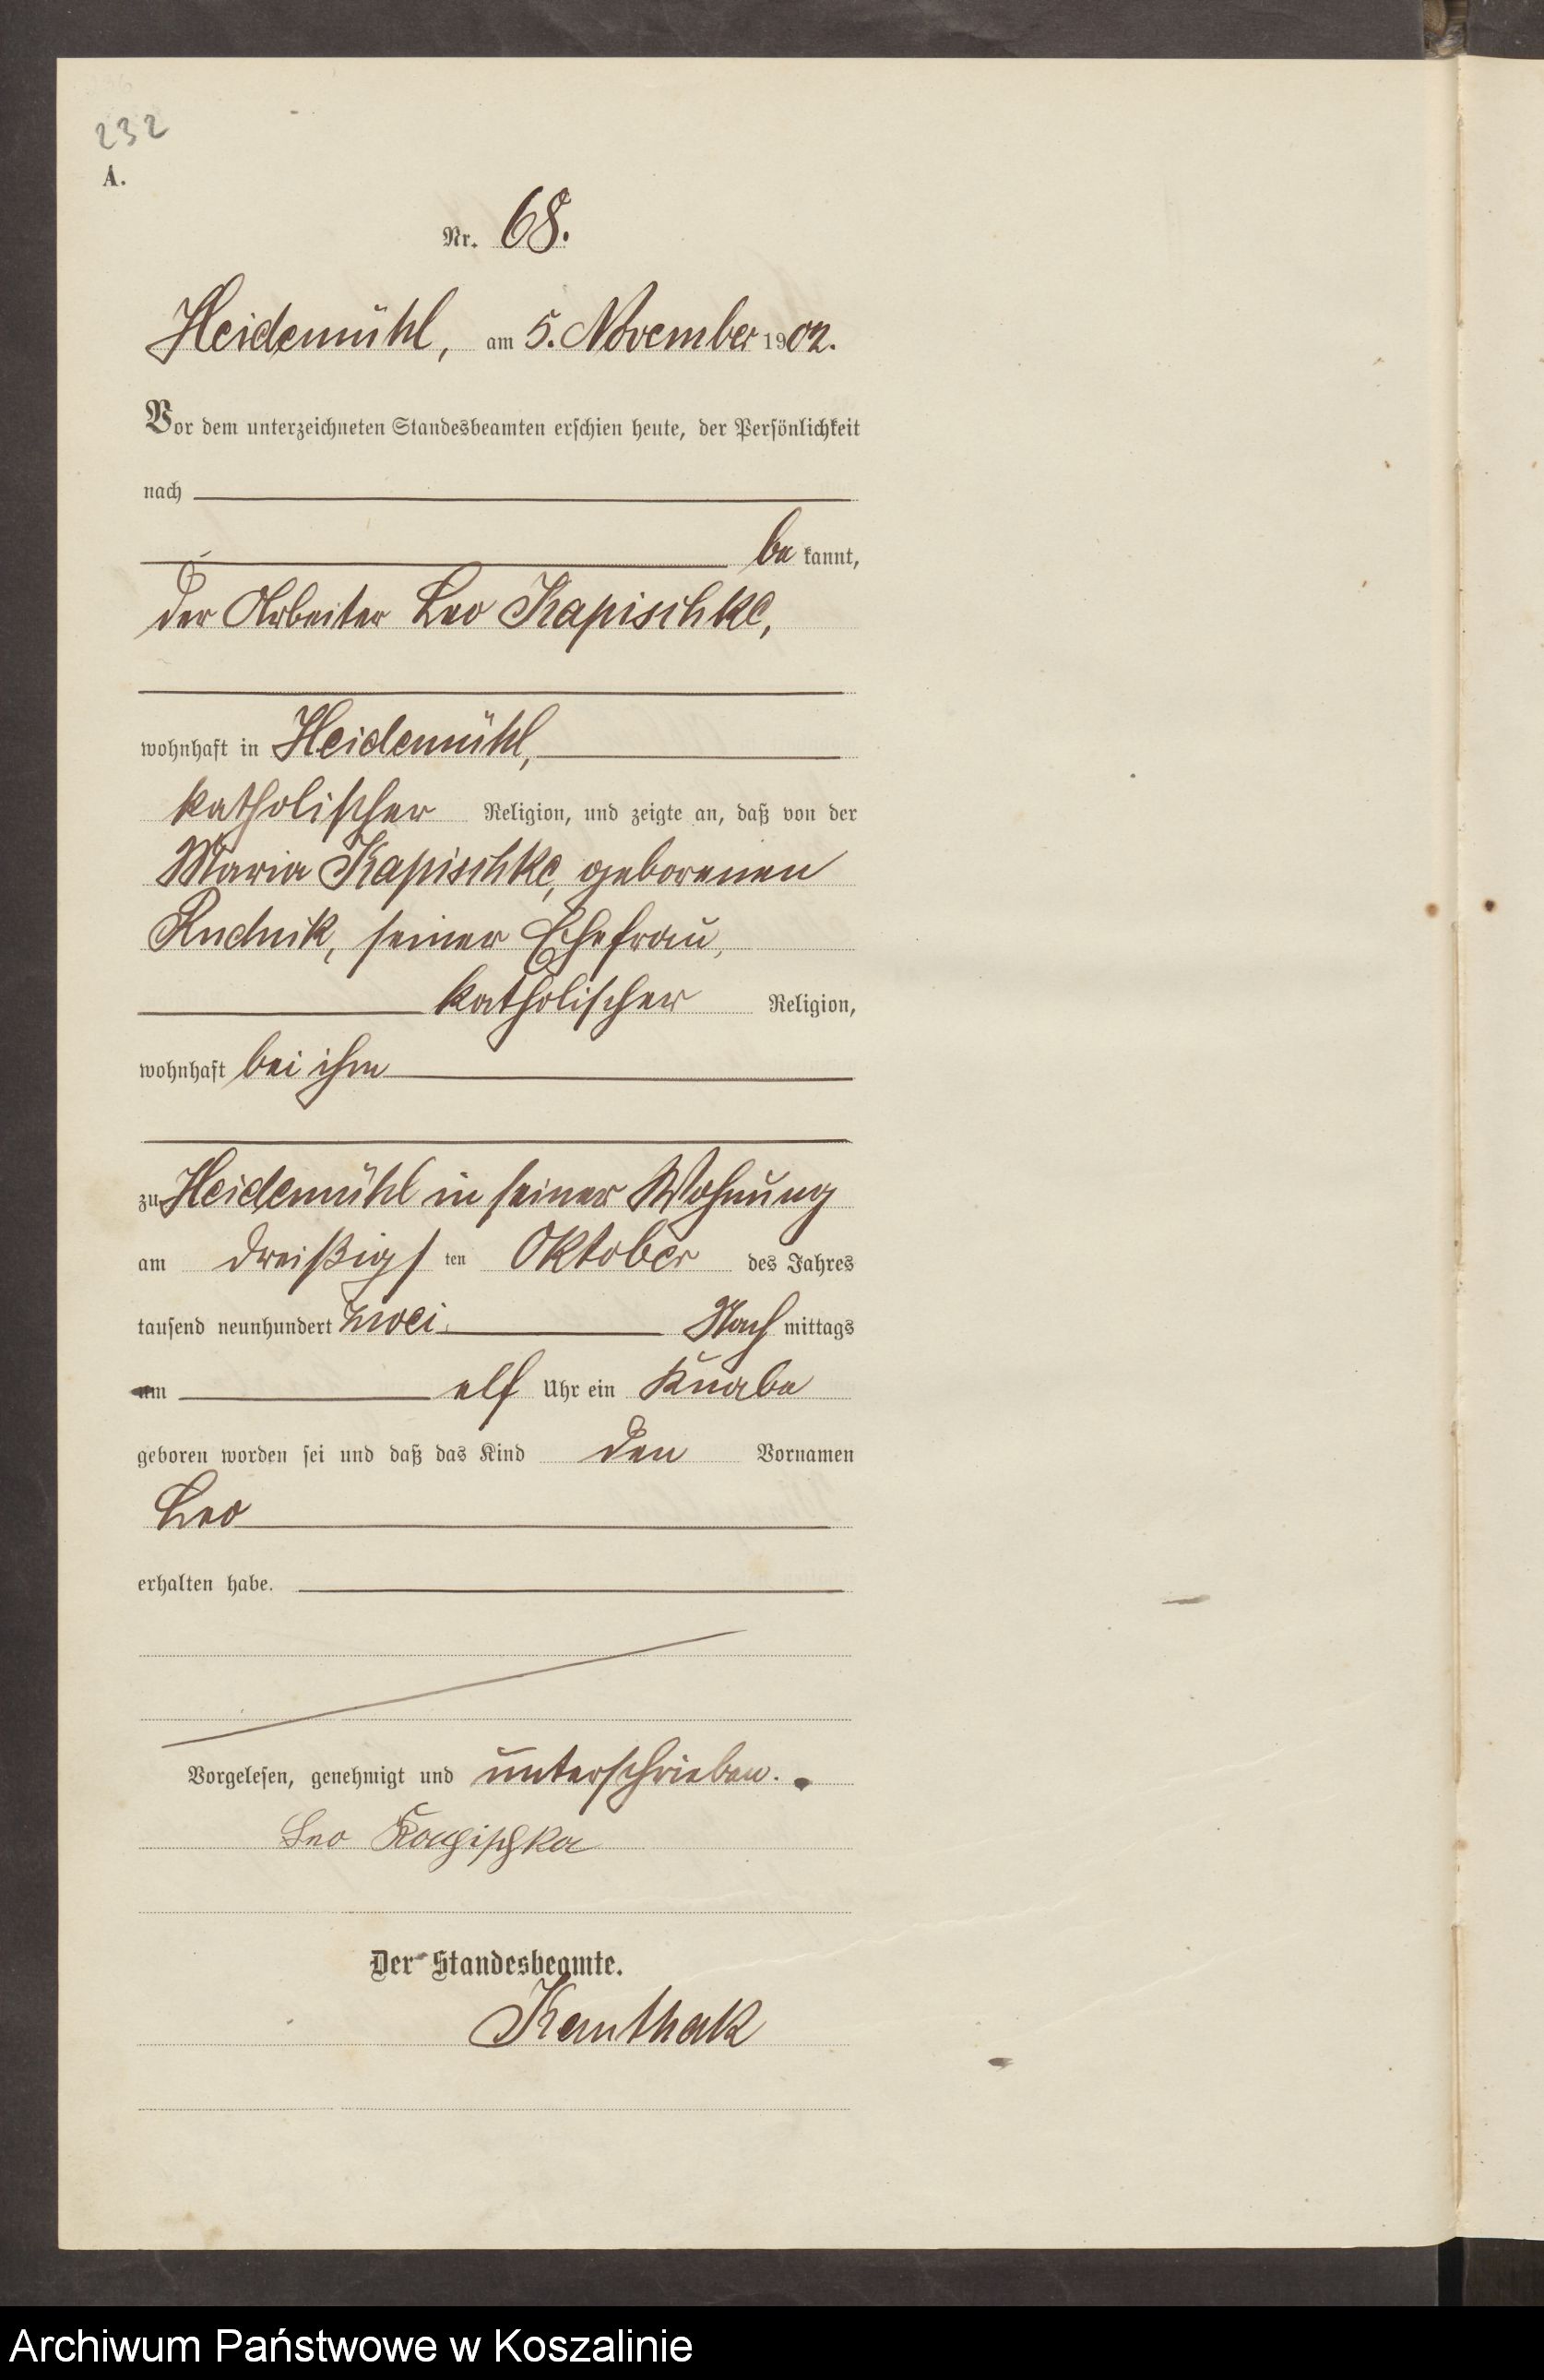 232
A.
Nr. 68.
Heidemühl, am 5. November 1902.
Vor dem unterzeichneten Standesbeamten erschien heute, der Persönlichkeit
nach
be kannt,
der Arbeiter Leo Kapischke,
wohnhaft in Heidemühl,
katholischer Religion, und zeigte an, daß von der
Maria Kapischke, geborenen
Rudnik, seiner Ehefrau,
katholischer Religion,
wohnhaft bei ihm
zu Heidemühl in seiner Wohnung
am dreißigs ten Oktober des Jahres
tausend neunhundert zwei Nach mittags
um elf Uhr ein Knabe
geboren worden sei und daß das Kind den Vornamen
Leo
erhalten habe.
Vorgelesen, genehmigt und unterschrieben.
Leo
Der Standesbeamte.
Archiwum Państwowe w Koszalinie